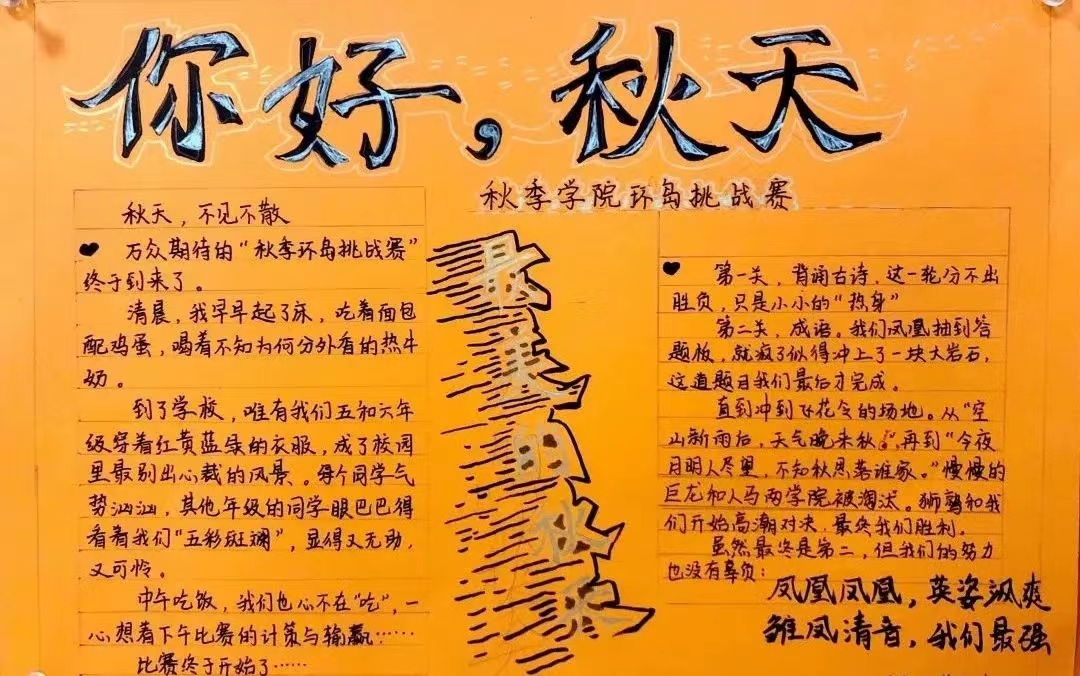 你好，秋天
秋季学院环岛挑战赛
秋天，不见不散
万众期待的“秋季环岛挑战赛”
终于到来了。
清晨，我早早起了床，吃着面包
配鸡蛋，喝着不知为何分外香的热牛
奶。
到了学校，唯有我们五和六年
级穿着红黄蓝绿的衣服，成了校园
里最别出心裁的风景。每个同学气
势汹汹，其他年级的同学眼巴巴得
看着我们“五彩斑斓”，显得又无助，
又可怜。
中午吃饭，我们也心不在“吃”，一
心想着下午比赛的计策与输赢……
比赛终于开始了……
最美的秋天
第一关，背诵古诗，这一轮分不出
胜负，只是小小的“热身”
第二关，成语。我们凤凰抽到答
题板，就疯了似得冲上了一块大岩石，
这道题目我们最后才完成。
直到冲到飞花令的场地。从“空
山新雨后，天气晚来秋”，再到“今夜
月明人尽望，不知秋思落谁家。”慢慢的
巨龙和人马两学院被淘汰。狮鹫和我
们开始高潮对决，最终我们胜利。
虽然最终是第二，但我们的努力
也没有辜负：
凤凰凤凰，英姿飒爽
雏凤清音，我们最强